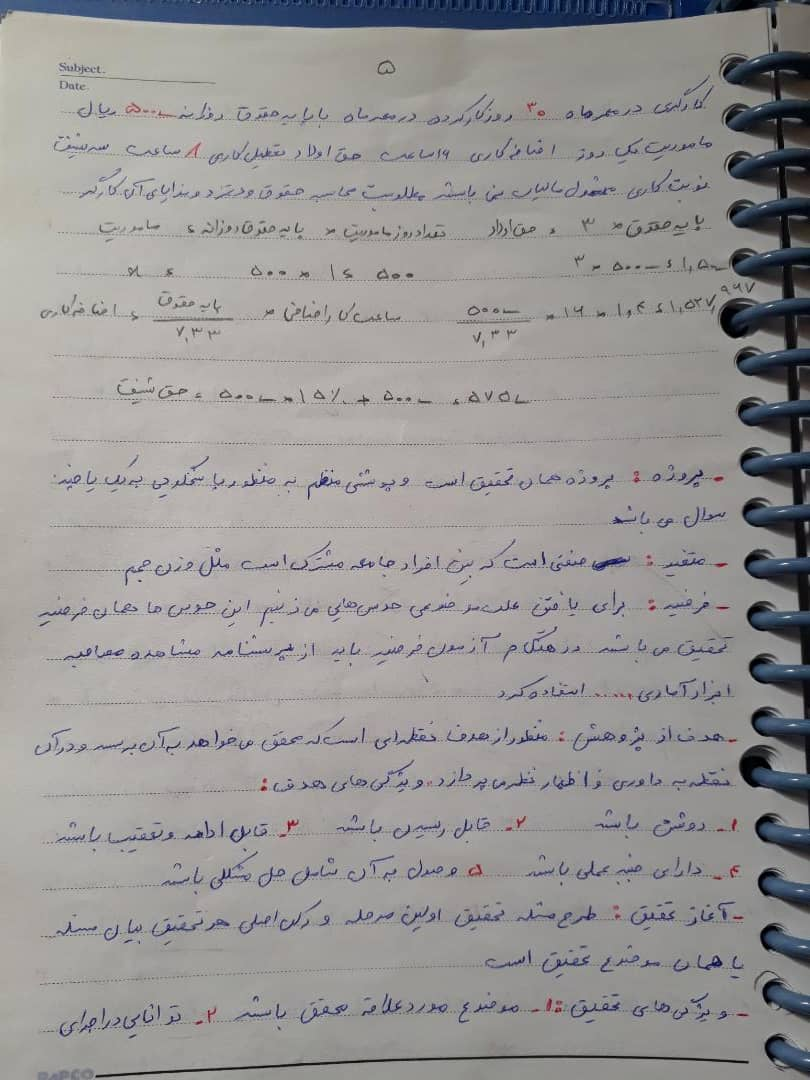 ۵
Subject.
Date.
کارگری در مهرماه ۳۰ روز کارکرده در مهرماه با پایه حقوق روزانه ۵۰۰۰۰۰ ریال
ماموریت یک روز اضافه کاری ۱۶ ساعت حق اولاد تعطیل کاری ۸ ساعت سه شیفت
نوبت کاری مشمول مالیات می باشد مطلوبست محاسبه حقوق و دستمزد و مزایای آن کارگر
پایه حقوق × ۳ = حق اولاد تعداد روز ماموریت × پایه حقوق روزانه = ماموریت
۳ × ۵۰۰۰۰۰ = ۱,۵۰۰۰۰۰
اضافه کاری = پایه حقوق / ۷,۳۳ × ساعت کار اضافی ۵۰۰۰۰۰ / ۷,۳۳ × ۱۶ × ۱,۴ = ۱,۵۲۷,۹۶۷
حق شیفت = ۵۰۰۰۰۰ × ۱۵٪ + ۵۰۰۰۰۰ = ۵۷۵۰۰۰
- پروژه : پروژه همان تحقیق است و پوششی منظم به منظور پاسخگویی به یک یا چند
سوال می باشد
- متغیر : صفتی است که بین افراد جامعه مشترک است مثل وزن حجم
- فرضیه : برای یافتن علت موضوعی حدس هایی می زنیم این حدس ها همان فرضیه
تحقیق می باشد در هنگام آزمون فرضیه باید از پرسشنامه مشاهده مصاحبه
ابزار آماری ..... استفاده کرد
- هدف از پژوهش : منظور از هدف نقطه ای است که محقق می خواهد به آن برسد و در آن
نقطه به داوری و اظهار نظر می پردازد. ویژگی های هدف :
۱- روشن باشد ۲- قابل رسیدن باشد ۳- قابل ادامه و تعقیب باشد
۴- دارای جنبه عملی باشد ۵ وصول به آن شامل حل مشکلی باشد
- آغاز تحقیق : طرح مسئله تحقیق اولین مرحله و رکن اصلی هر تحقیق بیان مسئله
یا همان موضوع تحقیق است
- ویژگی های تحقیق : ۱- موضوع مورد علاقه محقق باشد ۲- توانایی در اجرای
PAPCO